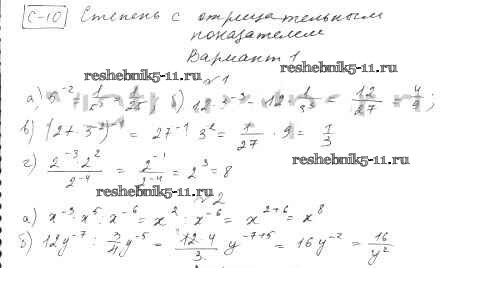 С-10 Степень с отрицательным
показателем
Вариант 1
reshebnik5-11.ru
reshebnik5-11.ru
№1
а) 5⁻² = 1/5² = 1/25 б) 12·3⁻³ = 12·1/3³ = 12/27 = 4/9;
в) (27·3⁻²)⁻¹ = 27⁻¹ 3² = 1/27 · 9 = 1/3
reshebnik5-11.ru
г) 2⁻³·2²/2⁻⁴ = 2⁻¹/2⁻⁴ = 2³ = 8
reshebnik5-11.ru
№2
а) x⁻³·x⁵ : x⁻⁶ = x² : x⁻⁶ = x²⁺⁶ = x⁸
б) 12y⁻⁷ : 3/4 y⁻⁵ = 12·4/3 · y⁻⁷⁺⁵ = 16y⁻² = 16/y²